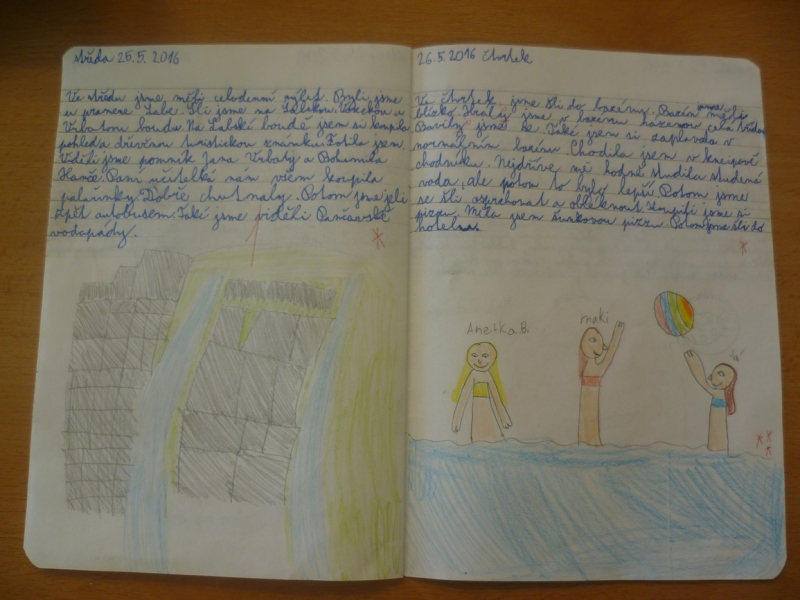 středa 25.5. 2016
Ve středu jsme měli celodenní výlet. Byli jsme
u pramene Labe. Šli jsme na Labskou, a
Vrbatovu boudu. Na Labské boudě jsem si koupila
pohled a dřevěnou turistickou známku. Fotila jsem.
Viděli jsme pomník Jana Vrbaty a Bohumila
Hanče. Paní učitelka nám všem koupila
palačinky. Dobře chutnaly. Potom jsme jeli
zpět autobusem. Také jsme viděli Pančavské
vodopády.
1
26.5.2016 čtvrtek
Ve čtvrtek jsme šli do bazénu. Bazén jsme měli
blízko. Hrály jsme v bazénu
jsme se. Také jsem si zaplavala v
normálním bazénu. Chodila jsem v kneipově
chodníku. Nejdříve mě hodně studila studená
voda, ale potom to bylo lepší. Potom jsme
se šli osprchovat a obléknout. Koupili jsme si
pizzu. Měla jsem šunkovou pizzu. Potom jsme šli do
hotelu.
Anetka.B.
maki
já